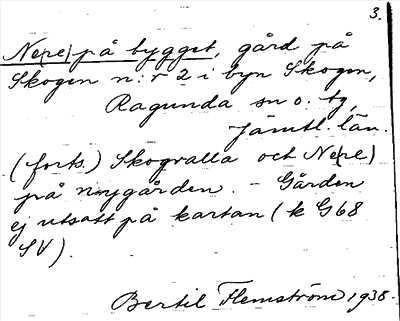 3.
Ne(re) på bygget, gård på
Skogen n:r 2 i byn Skogen,
Ragunda sn o. tg,
Jämtl. län.
(forts.) Skogvalla och Ne(re)
på nygården. - Gården
ej utsatt på kartan (k G68
SV).
Bertil Flemström 1938.